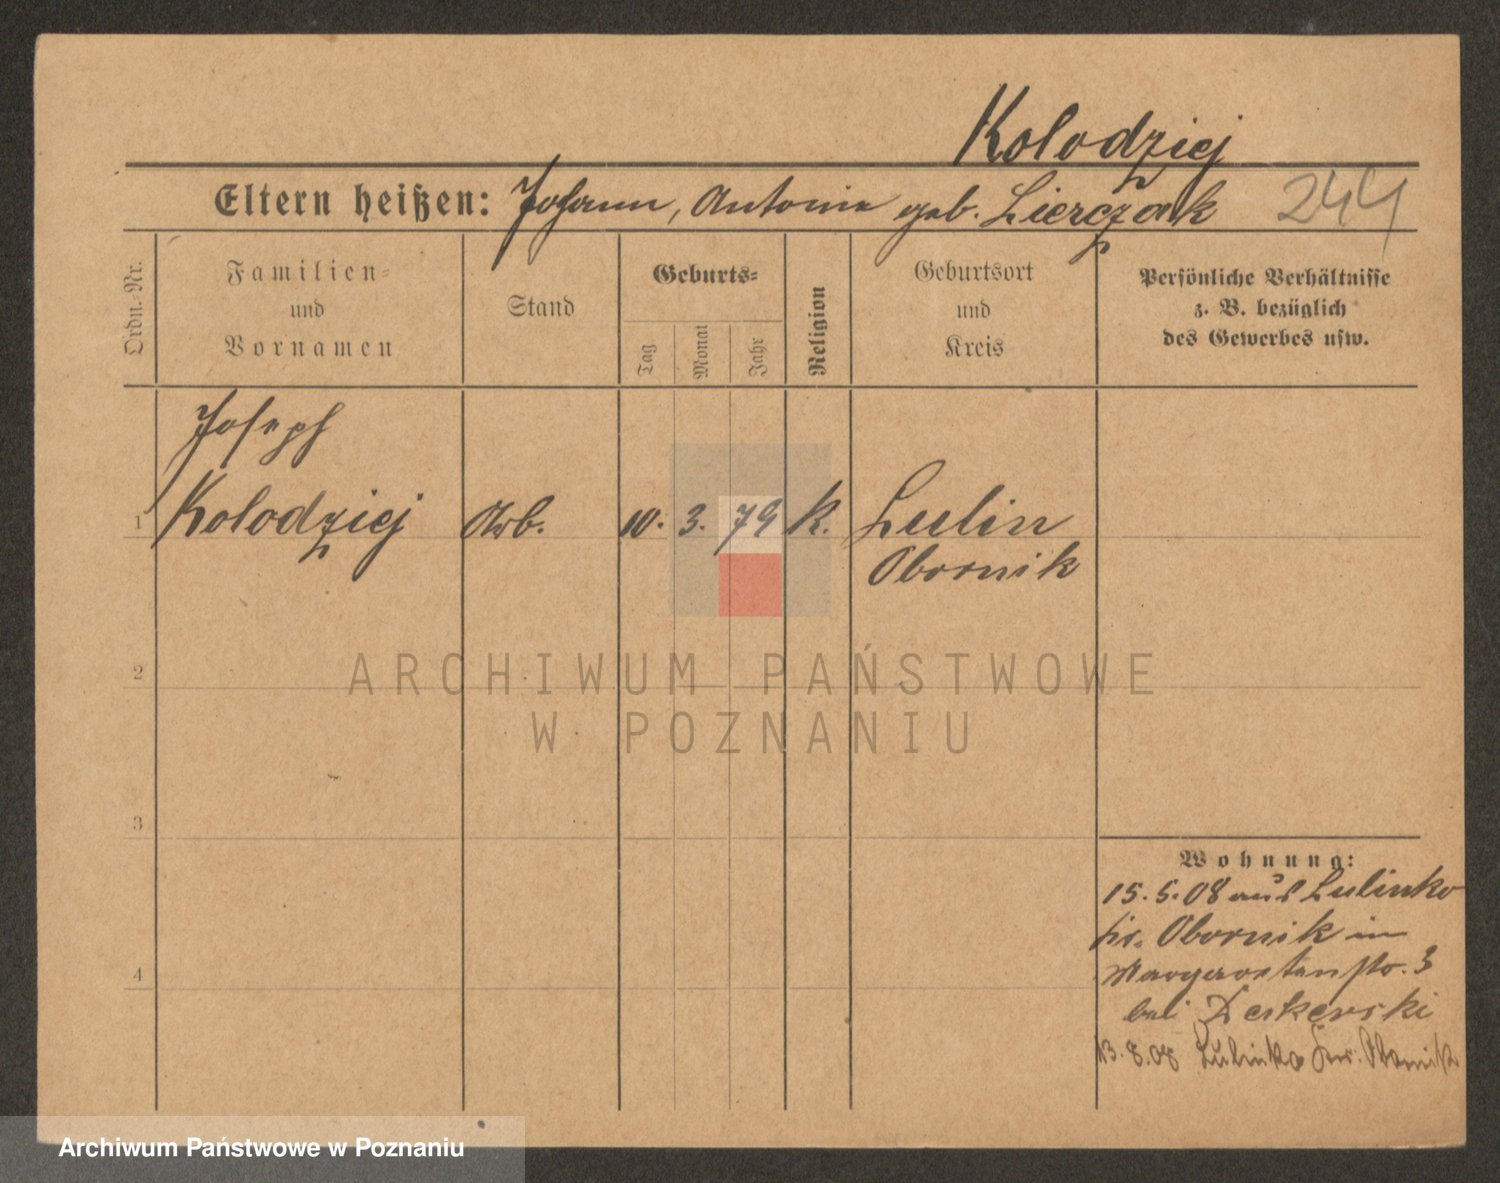 Kolodziej
Eltern heißen: Johann, Antonie geb. Lierczak 244
Ordn.-Nr.
Familien-
und
Vornamen
Stand
Geburts-
Tag
Monat
Jahr
Religion
Geburtsort
und
Kreis
Persönliche Verhältnisse
z. B. bezüglich
des Gewerbes usw.
Joseph
1 Kolodziej Arb. 10. 3. 79 K. Lulin
Obornik
2
ARCHIWUM PAŃSTWOWE
W POZNANIU
3
Wohnung:
15.5.08 aus Lulinko
Kr. Obornik in
Margaretenstr. 3
bei
4
13.8.08 Lulinko Kr. Obornik
Archiwum Państwowe w Poznaniu